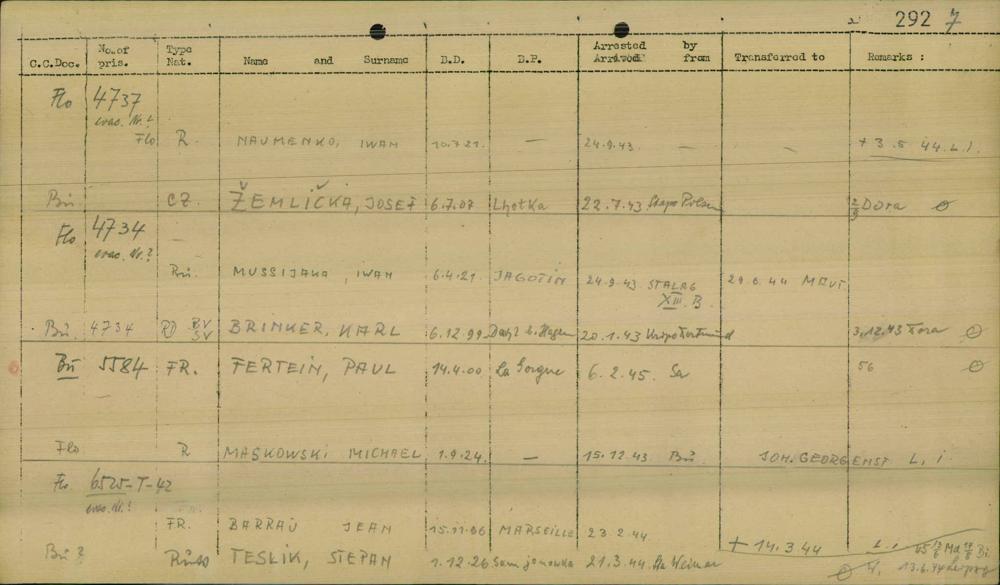 292 7
C.C.Doc. No. of pris. Type Nat. Name and Surname B.D. B.P. Arrested Arrived by from Transferred to Remarks :
Flo 4737
evac. Nr.?
Flo R. NAUMENKO, IWAN 10.7.21. — 24.9.43. — — + 3.5 44. L.I.
Bu. CZ. ŽEMLIČKA, JOSEF 6.7.07 Lhotka 22.7.43 Stapo Pilsen Dora
Flo 4734 —
evac. Nr.?
Ru. MUSSIJAKA, IWAN 6.4.21. JAGOTIN 24.9.43 STALAG 29.6.44 MAUT
XIII. B
Bu. 4734 RD BV BRINKER, KARL 6.12.99 b. Hagen 20.1.43 Kripo Dortmund 3.12.43 Dora
SV
Bu 5584 FR. FERTEIN, PAUL 14.4.00 La Gorgue 6.2.45. Sa 56
—
Flo R MASKOWSKI MICHAEL 1.9.24. — 15.12.43 Bu. JOH. GEORGENST L, i
Flo 6525-T-42
evac. Nr.?
FR. BARRAU JEAN 15.11.06 MARSEILLE 23 2.44.
+ 14.3.44 L.i.
Bu ? Russ TESLIK, STEPAN 1.12.26 21.3.44. Weimar 13.6.44 Leipzig